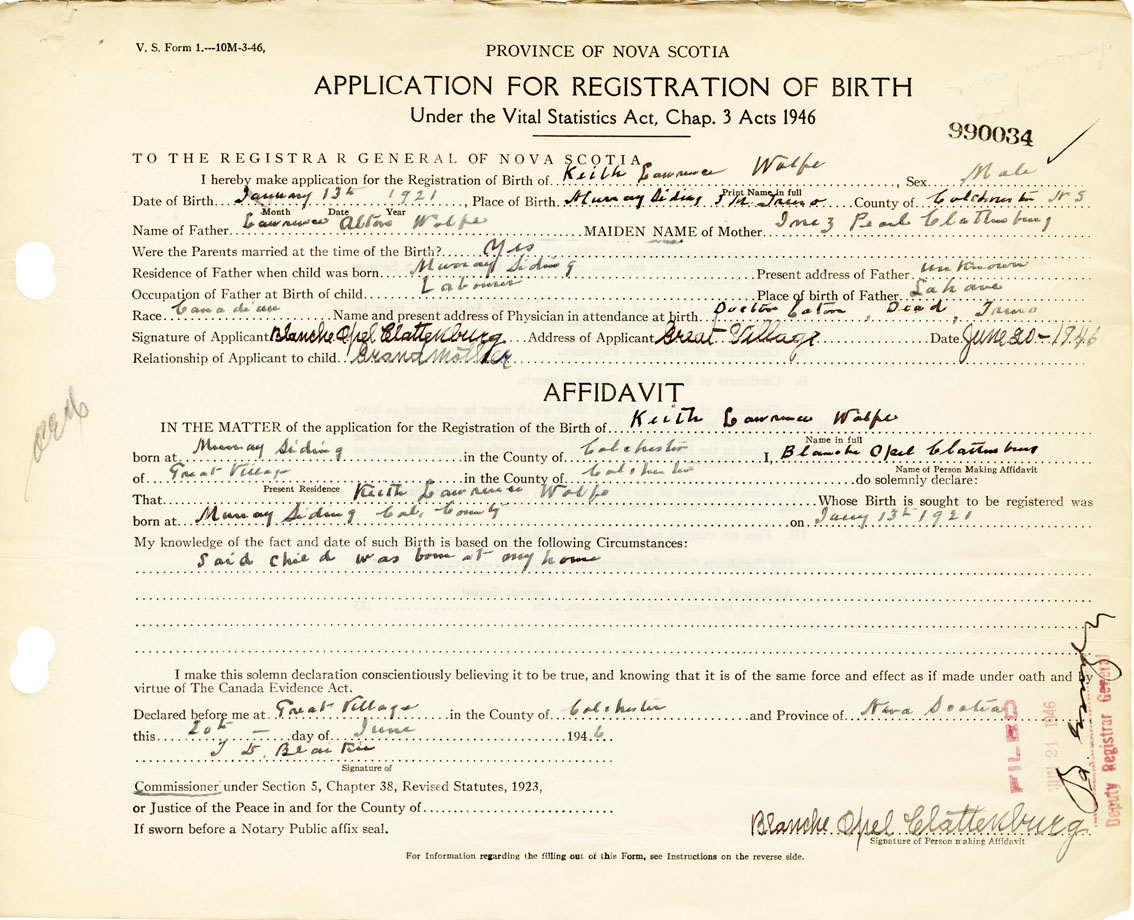 V. S. Form 1.---10M-3-46,
PROVINCE OF NOVA SCOTIA
APPLICATION FOR REGISTRATION OF BIRTH
Under the Vital Statistics Act, Chap. 3 Acts 1946
990034
TO THE REGISTRAR GENERAL OF NOVA SCOTIA
I hereby make application for the Registration of Birth of Keith Lawrence Wolfe, Sex Male
Print Name in full
Date of Birth January 13th 1921, Place of Birth Murray Siding Truro County of Colchester N S
Month Date Year
Name of Father Lawrence Alton Wolfe MAIDEN NAME of Mother Inez Pearl Clattenburg
Were the Parents married at the time of the Birth? Yes
Residence of Father when child was born Murray Siding Present address of Father unknown
Occupation of Father at Birth of child Labourer Place of birth of Father Lahave
Race Canadian Name and present address of Physician in attendance at birth Doctor Eaton, Dead, Truro
Signature of Applicant Blanche Opel Clattenburg Address of Applicant Great Village Date June 20-1946
Relationship of Applicant to child Grandmother
AFFIDAVIT
IN THE MATTER of the application for the Registration of the Birth of Keith Lawrence Wolfe
Name in full
born at Murray Siding in the County of Colchester I, Blanche Opel Clattenburg
Name of Person Making Affidavit
of Great Village in the County of Colchester do solemnly declare:
Present Residence
That Keith Lawrence Wolfe Whose Birth is sought to be registered was
born at Murray Siding Col. County on Jany 13th 1921
My knowledge of the fact and date of such Birth is based on the following Circumstances:
Said child was born at my home
I make this solemn declaration conscientiously believing it to be true, and knowing that it is of the same force and effect as if made under oath and by
virtue of The Canada Evidence Act.
Declared before me at Great Village in the County of Colchester and Province of Nova Scotia
this 20th day of June 1946
Signature of
Commissioner under Section 5, Chapter 38, Revised Statutes, 1923,
or Justice of the Peace in and for the County of
If sworn before a Notary Public affix seal.
Blanche Opel Clattenburg
Signature of Person making Affidavit
For Information regarding the filling out of this Form, see Instructions on the reverse side.
FILED
JUN 21 1946
Deputy Registrar General